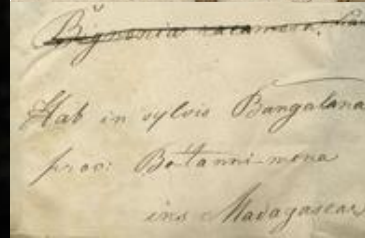 Bignonia racemosa. Lam
Hab in sylvis Bangalana
prov: Betanni-mena
ins Madagascar